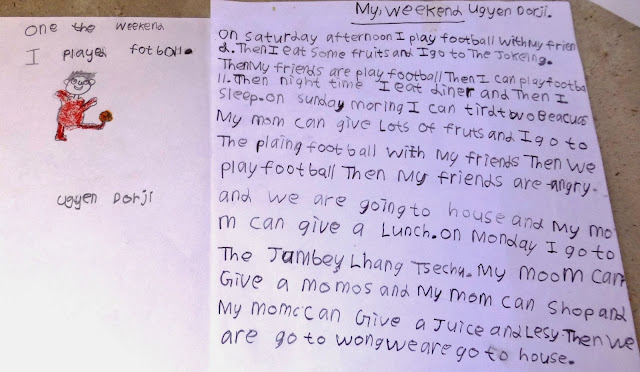 one the weekend
I played fotboll.
ugyen Dorji
My, weekend ugyen Dorji.
On saturday afternoon I play football with My frien
d. Then I eat some fruits and I go to The Jokeing.
Then My friends are play football Then I can play footba
ll. Then night time I eat diner and Then I
sleep. on sunday moring I can tird two Beacuas
My mom can give Lots of fruts and I go to
The plaing football with My friends Then we
play football Then My friends are angry.
and we are going to house and My mo
m can give a Lunch. on Monday I go to
The Jambey Lhang Tsechu. My moom can
Give a momos and My mom can shop and
My momccan Give a Juice and Lesy. Then we
are go to wong we are go to house.